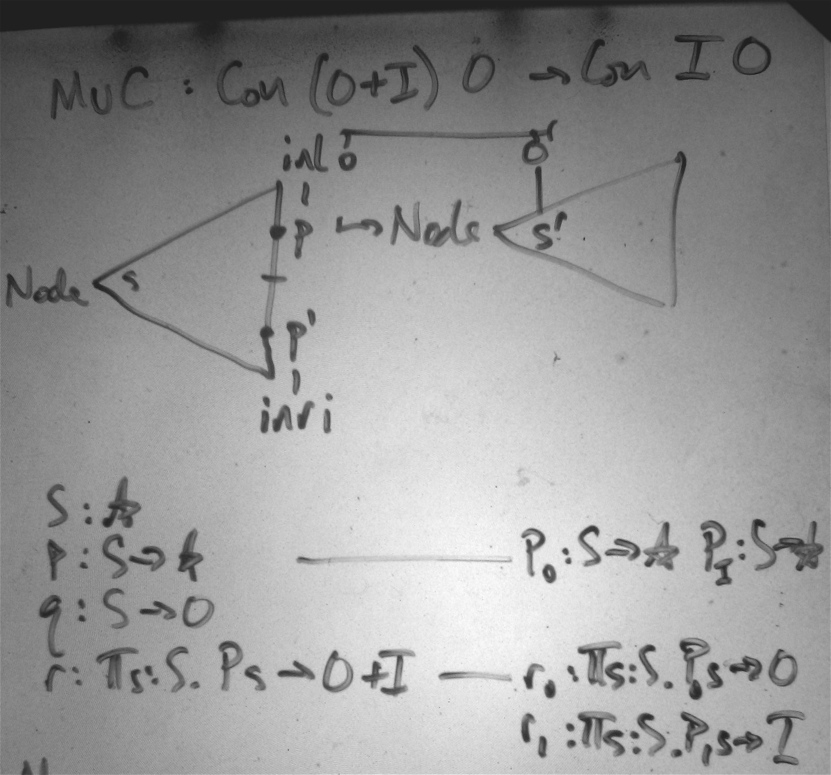 MuC : Con (O+I) O → Con I O
inl o o'
p ↦ Node s'
Node s
p'
inr i
S : ★
P : S → ★ P₀ : S → ★ P_I : S → ★
q : S → O
r : Πs:S. P s → O+I r₀ : Πs:S. P₀ s → O
r₁ : Πs:S. P₁ s → I